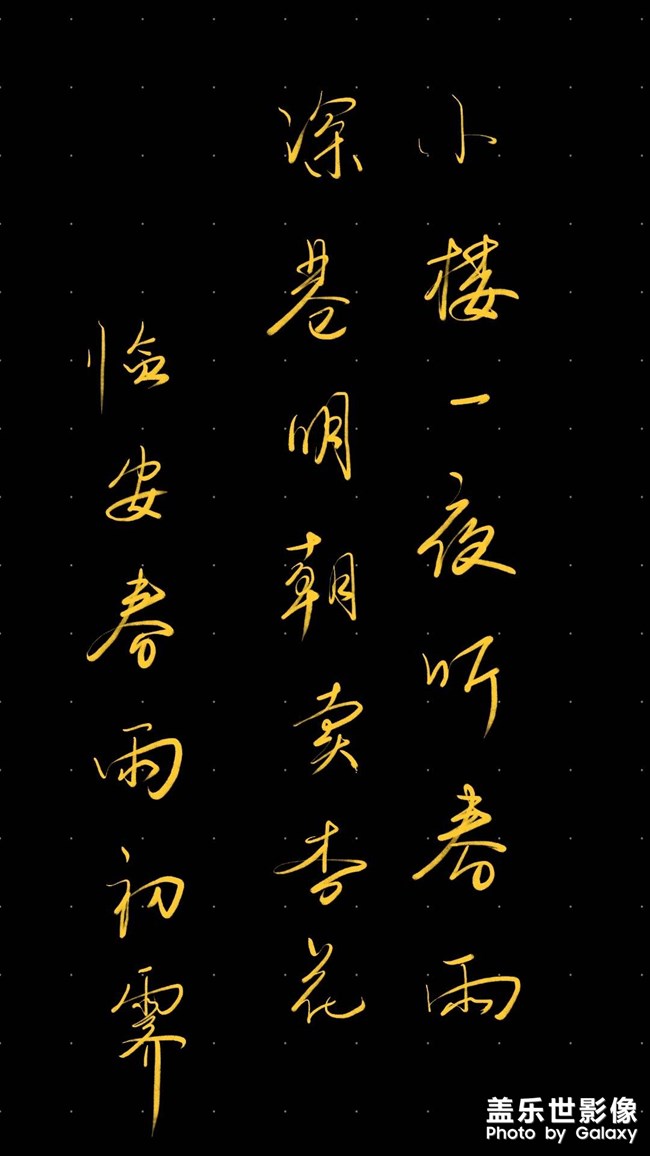 小楼一夜听春雨
深巷明朝卖杏花
临安春雨初霁
盖乐世影像
Photo by Galaxy